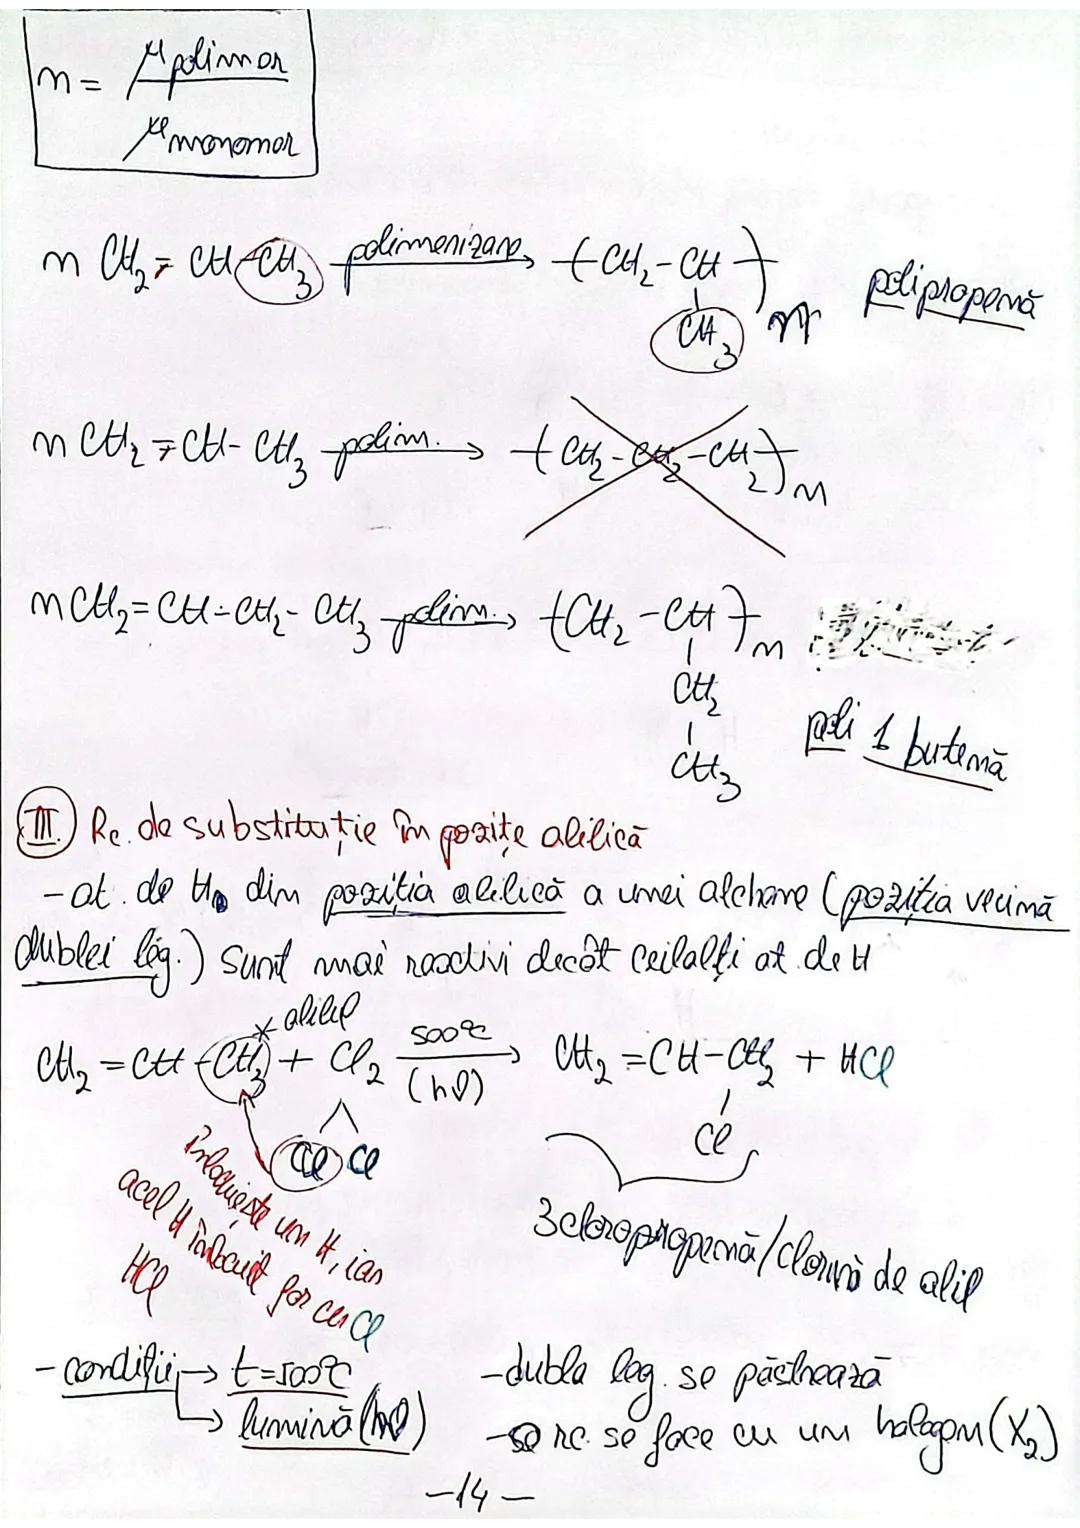 n = μpolimer
μmonomer
n CH2 = CH-CH3 polimerizare → (CH2-CH)n polipropenă
CH3
n CH2 = CH-CH3 polim. → (CH2-CH2-CH2)n
n CH2 = CH-CH2-CH3 polim. → (CH2-CH)n
CH2
CH3
poli 1 butenă
III. Rc. de substituție în poziție alilică
-at. de H din poziția alilică a unei alchene (poziția vecină
dublei leg.) sunt mai reactivi decât ceilalți at. de H
* alilel
CH2 = CH-CH3 + Cl2 500°C (hν) → CH2 = CH-CH2 + HCl
Cl
Cl Cl
Înlocuiește un H, iar
acel H înlocuit for cu Cl
HCl
3cloropropenă/Clorură de alil
- condiții → t=500°C
→ lumină (hν)
-dubla leg. se păstrează
- rc. se face cu un halogen (X2)
-14-